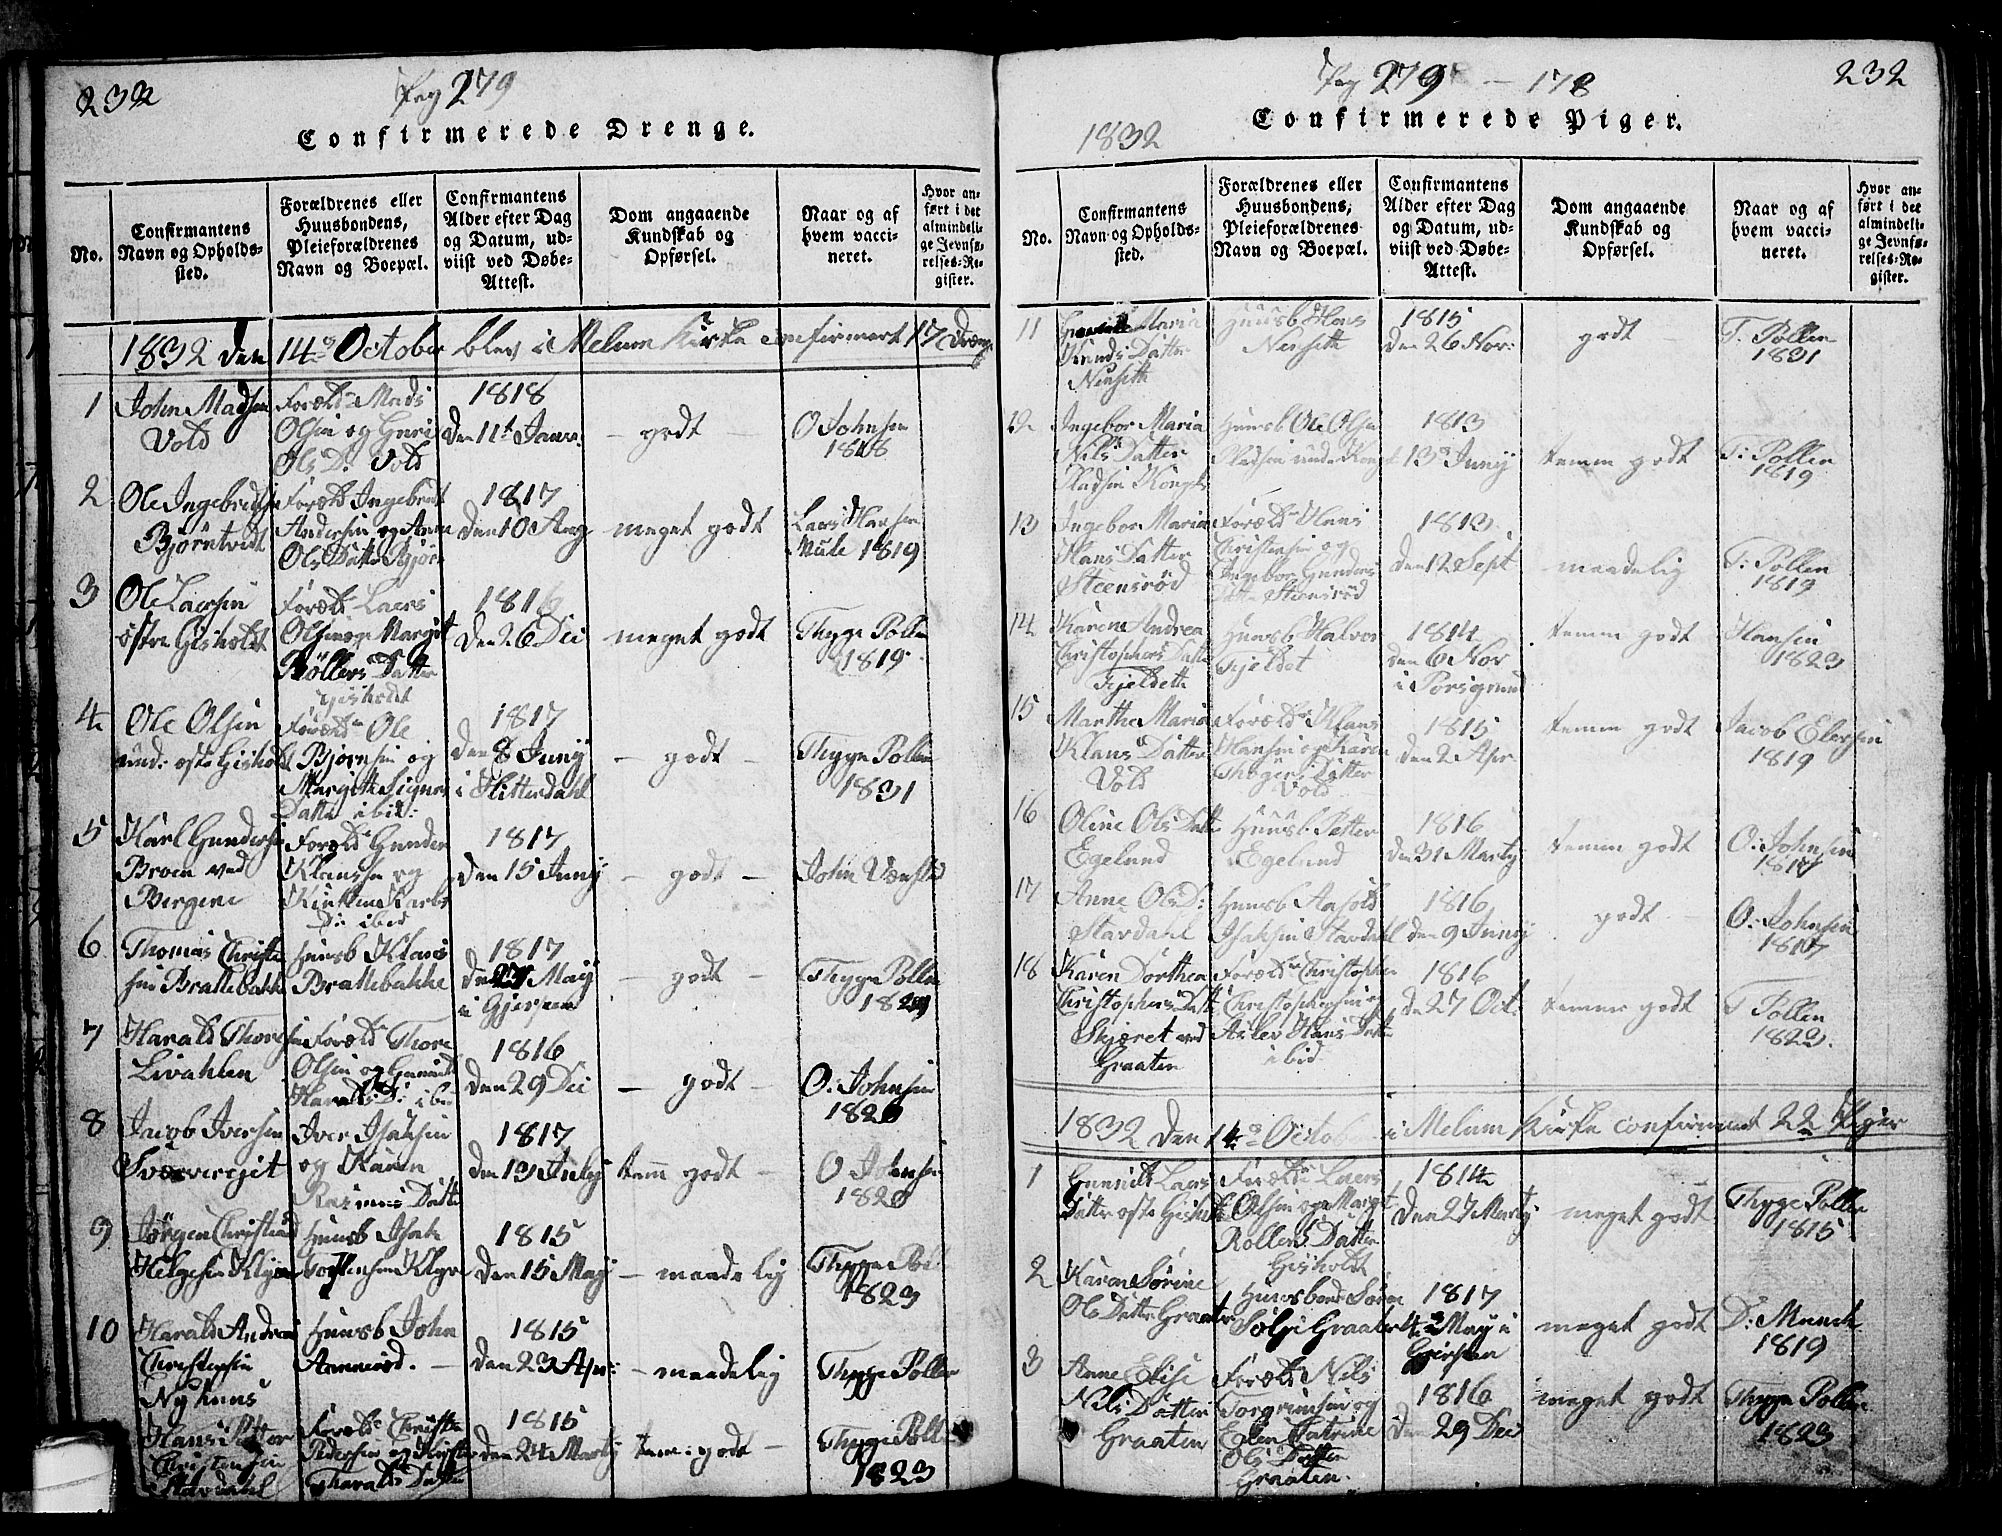 232
Pag 279
Confirmerede Drenge.
No.
Confirmantens Navn og Opholds-sted.
Forældrenes eller Huusbondens, Pleieforældrenes Navn og Boepæl.
Confirmantens Alder efter Dag og Datum, ud-viist ved Døbe-Attest.
Dom angaaende Kundskab og Opførsel.
Naar og af hvem vacci-neret.
Hvor an-ført i det almindeli-ge Jevnfø-relses-Re-gister.
1832 den 14de October blev i Melum Kirke confirmert 17 Drenge
1 John Madsen Vold
Foræld: Mads Olsen og Guri Ols D: Vold
1818 den 11t Janr.
godt
O Johnsen 1818
2 Ole Ingebretsen Bjørntvedt
Foræld Ingebret Andersen og Anne Ols Datter Bjørn
1817 den 10 Aug
meget godt
Lars Hansen Mule 1819
3 Ole Laersen østre Gisholdt
Foræld Laers Olsen og Margit Röllers Datter Gisholdt
1816 den 26 Dec
meget godt
Thyge Pollen 1819
4 Ole Olsen und: østre Gisholt
Foræld Ole Bjørnsen og Margithe Signes Datter ibid:
1817 den 8 Juny i Hitterdahl
godt
Thyge Pollen 1831
5 Karl Gundersen Broen ved Bergene
Foræld Gunder Klausen og Kirsten Karls D: ibid
1817 den 15 Juny
godt
John Vænsted
6 Thomas Christensen Brattebakke
Huusb Klaus Brattebakke
1817 den 27 May i Gjerpen
godt
Thyge Pollen
7 Harald Thoresen Livahlen
Foræld Thore Olsen og Gunnild Haralds D: ibid
1816 den 29 Dec
godt
O: Johnsen 1820
8 Jacob Iversen Sværvergiet
Iver Isaksen og Karen Rasmus Datter
1817 den 13 July
tem godt
O Johnsen 1820
9 Jørgen Christian Helgesen Klyve
Huusb Isak Torstensen Klyve
1815 den 15 May
maadelig
Thyge Poll 1823
10 Harald Andreas Christensen Nyhuus
Huusb John Aamerod.
1815 den 23 Apr:
maadelig
Thyge Pollen
Hans Petter Christensen Stavdahl
Foræld Christen Pedersen og Kirsten Tharalds Datter
1815 den 24 Marty
tem: godt
Thyge Pollen 1823
Pag 279 - 178
232
Confirmerede Piger.
1832
No.
Confirmantens Navn og Opholds-sted.
Forældrenes eller Huusbondens, Pleieforældrenes Navn og Boepæl.
Confirmantens Alder efter Dag og Datum, ud-viist ved Døbe-Attest.
Dom angaaende Kundskab og Opførsel.
Naar og af hvem vacci-neret.
Hvor an-ført i det almindeli-ge Jevnfø-relses-Re-gister.
11 Maria Knuds Datter Nenseth
Huusb Hans Nenseth
1815 den 26 Nor:
godt
T. Pollen 1831
12 Ingebor Maria Nils Datter
Huusb Ole Olsen
1813 13de Juny
temm godt
T: Pollen 1819
13 Ingebor Maria Hans Datter Steensrød
Foræld Hans Christensen og Ingebor Gunders Datter Steensrød
1813 den 12 Sept
maadelig
T: Pollen 1819
14 Karen Andrea Christophers Datter Fjeldeth
Huusb Halvor Fjeldet
1814 den 6 Nor i Porsgrund
temm godt
Hansen 1823
15 Marthe Maria Klaus Datter Vold
Foræld Klaus Hansen og Karen Thogers Datter Vold
1815 den 2 Apr
temm godt
Jacob Elersen 1819
16 Oline Ols Datter Egelund
Huusb Petter Egelund
1816 den 31 Marty
temm godt
O: Johnsen 1817
17 Anne Ols D: Stavdahl
Huusb Aasold Isaksen Stavdahl
1816 den 9 Juny
godt
O: Johnsen 1817
18 Karen Dorthea Christophers Datt Skjæret ved Graaten
Foræld Christopher Christophersen og Aslev Hans Datter ibid
1816 den 27 Oct:
temm godt
T Pollen 1823.
1832 den 14de October i Melum Kirke confirmert 22 Piger
1 Gunnild Laers Datter østre Gisholt
Foræld Laers Olsen og Margit Rollens Datter Gisholdt
1814 den 27 Marty
meget godt
Thyge Pollen 1815
2 Karen Sørine Ols Datter Graaten
Huusbond Søren Solgi Graaten
1817 4de May i Gjerpen
meget godt
D: Munch 1819
3 Anne Elise Nils Datter Graaten
Foræld Nils Torgrimsen og Elen Catrine Ols Datter Graaten.
1816 den 29 Dec
meget godt
Thyge Pollen 1823